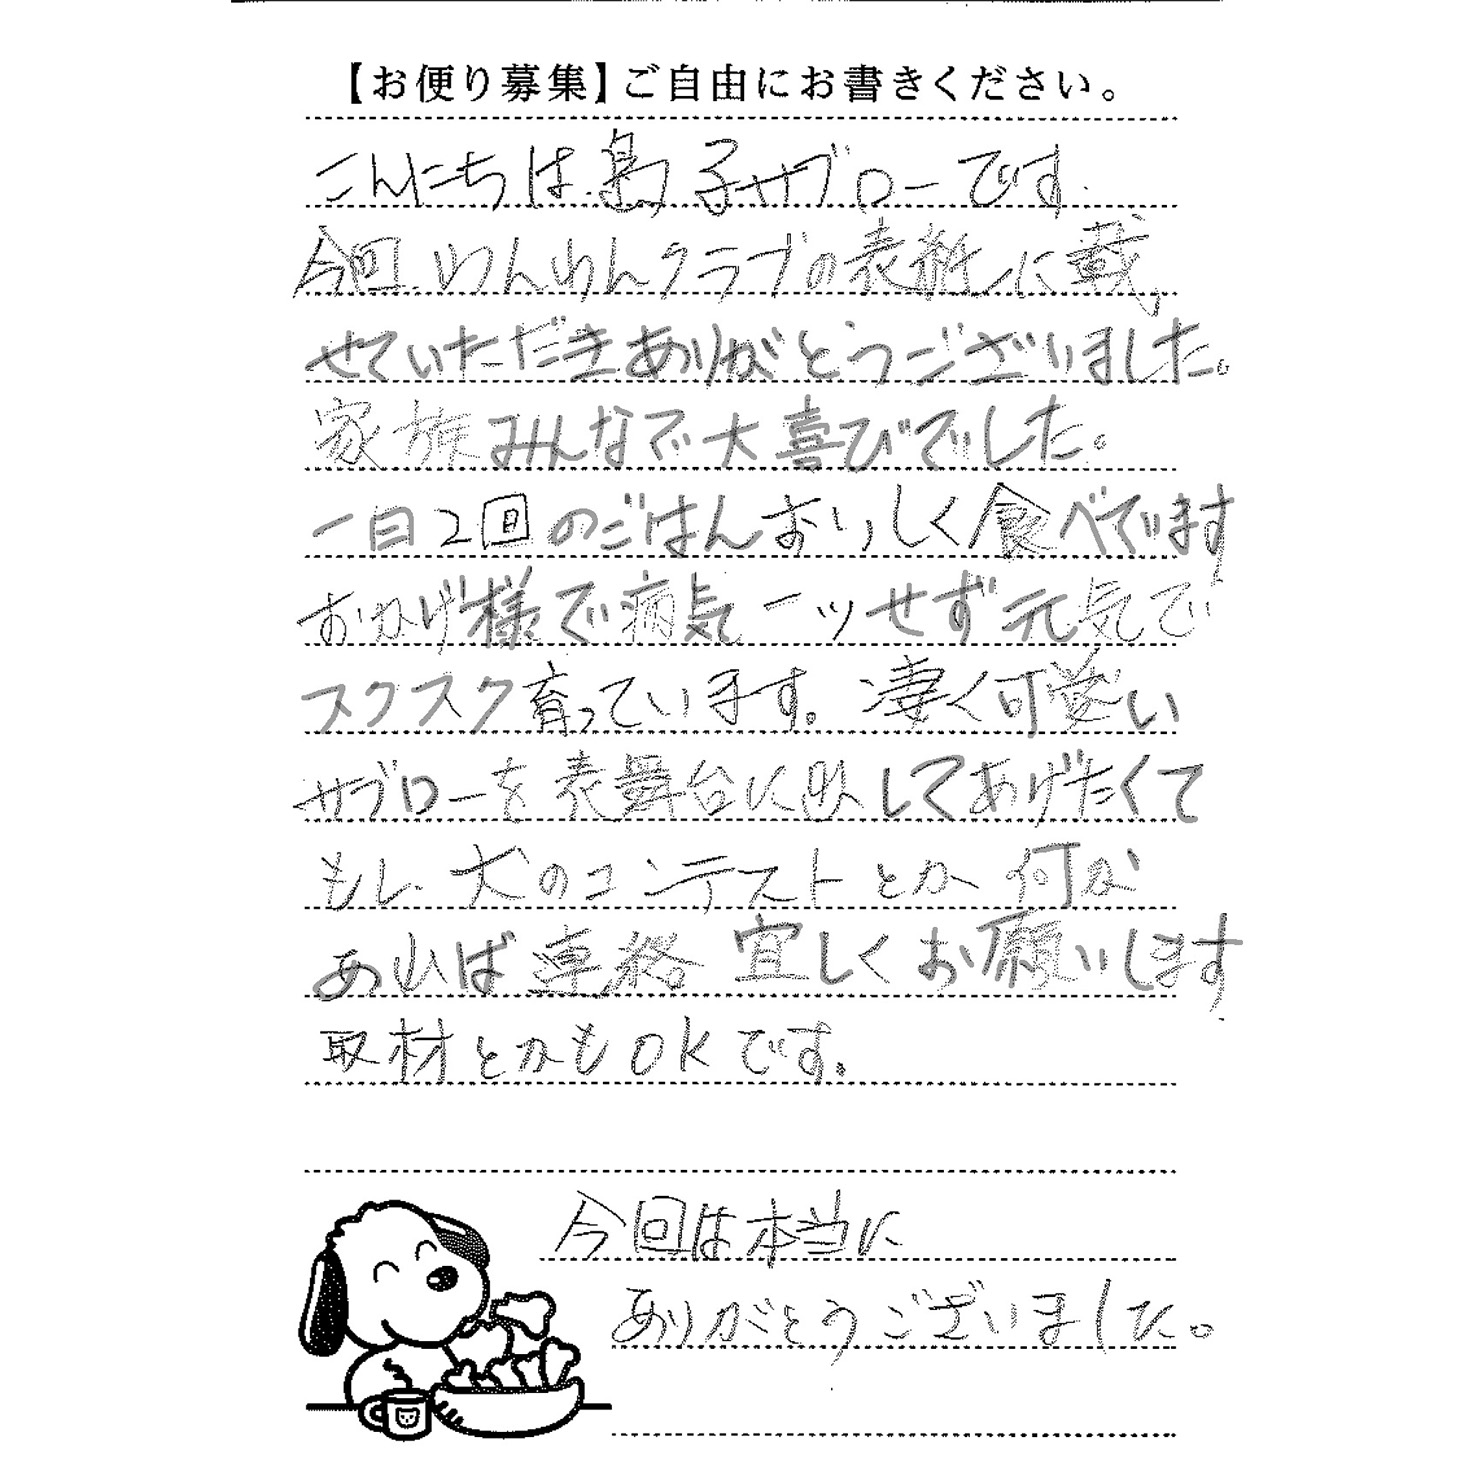 【お便り募集】ご自由にお書きください。
こんにちは島子サブローです
今回わんわんクラブの表紙に載
せていただきありがとうございました。
家族みんなで大喜びでした。
一日2回のごはんおいしく食べてます
おかげ様で病気一ツせず元気で
スクスク育っています。凄く可愛い
サブローを表舞台に出してあげたくて
もし犬のコンテストとか何か
あれば連絡宜しくお願いします
取材とかもOKです。
今回は本当に
ありがとうございました。